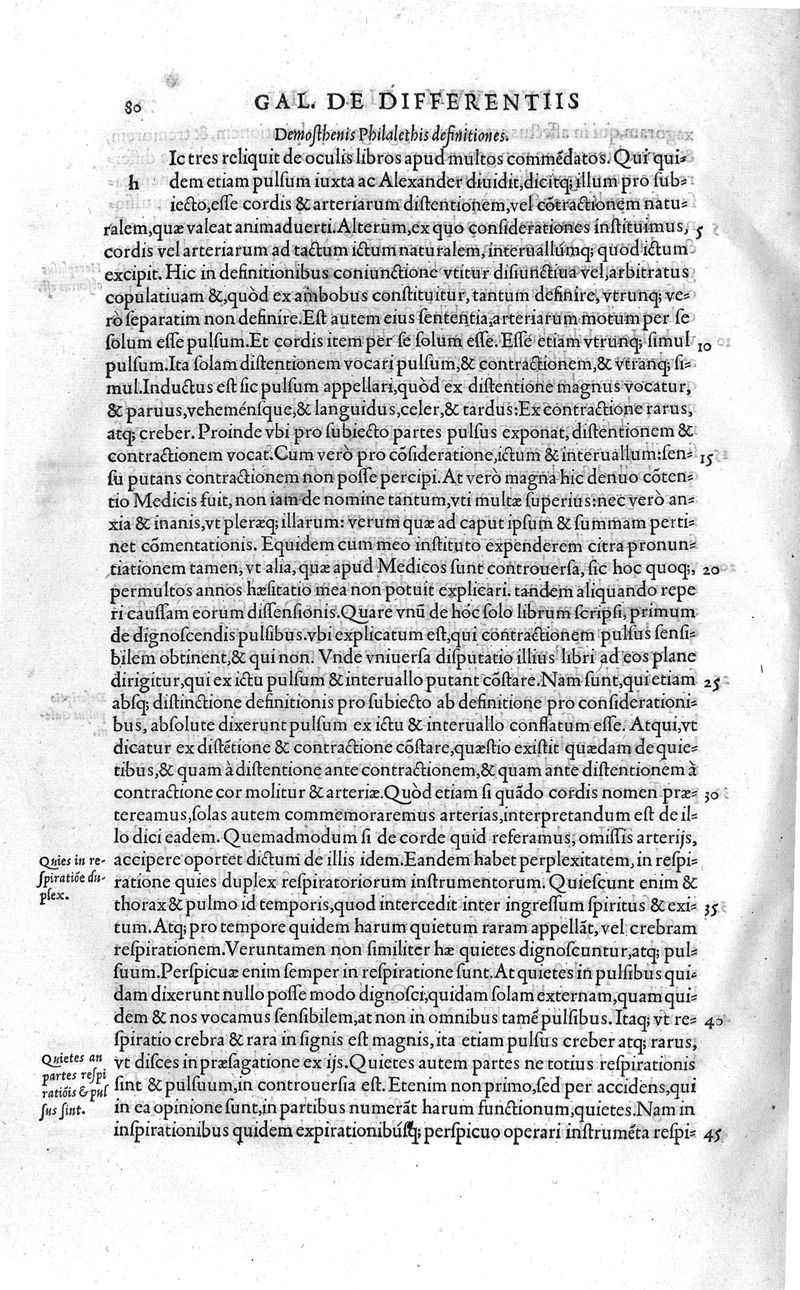 80 GAL. DE DIFFERENTIIS
Demosthenis Philalethis definitiones.
h Ic tres reliquit de oculis libros apud multos commẽdatos. Qui qui=
dem etiam pulſum iuxta ac Alexander diuidit,dicitq; illum pro ſub=
iecto,eſſe cordis & arteriarum diſtentionem,vel cõtractionem natu=
ralem,quæ valeat animaduerti.Alterum,ex quo conſiderationes inſtituimus, 5
cordis vel arteriarum ad tactum ictum naturalem, interuallumq; quod ictum
excipit. Hic in definitionibus coniunctione vtitur diſiunctiua vel,arbitratus
copulatiuam &,quòd ex ambobus conſtituitur, tantum definire, vtrunq; ve=
rò ſeparatim non definire.Eſt autem eius ſententia,arteriarum motum per ſe
ſolum eſſe pulſum.Et cordis item per ſe ſolum eſſe. Eſſe etiam vtrunq; ſimul 10
pulſum.Ita ſolam diſtentionem vocari pulſum,& contractionem,& vtranq; ſi=
mul.Inductus eſt ſic pulſum appellari,quòd ex diſtentione magnus vocatur,
& paruus,veheménſque,& languidus,celer,& tardus:Ex contractione rarus,
atq; creber. Proinde vbi pro ſubiecto partes pulſus exponat, diſtentionem &
contractionem vocat.Cum verò pro cõſideratione,ictum & interuallum:ſen= 15
ſu putans contractionem non poſſe percipi.At verò magna hic denuo cõten=
tio Medicis fuit, non iam de nomine tantum,vti multæ ſuperius:nec verò an=
xia & inanis,vt pleræq; illarum: verum quæ ad caput ipſum & ſummam perti=
net cõmentationis. Equidem cum meo inſtituto expenderem citra pronun=
tiationem tamen, vt alia, quæ apud Medicos ſunt controuerſa, ſic hoc quoq;, 20
permultos annos hæſitatio mea non potuit explicari. tandem aliquando repe
ri cauſſam eorum diſſenſionis.Quare vnũ de hoc ſolo librum ſcripſi, primum
de dignoſcendis pulſibus.vbi explicatum eſt,qui contractionem pulſus ſenſi=
bilem obtinent,& qui non. Vnde vniuerſa diſputatio illius libri ad eos plane
dirigitur,qui ex ictu pulſum & interuallo putant cõſtare.Nam ſunt,qui etiam 25
abſq; diſtinctione definitionis pro ſubiecto ab definitione pro conſiderationi=
bus, abſolute dixerunt pulſum ex ictu & interuallo conflatum eſſe. Atqui,vt
dicatur ex diſtẽtione & contractione cõſtare,quæſtio exiſtit quædam de quie=
tibus,& quam à diſtentione ante contractionem,& quam ante diſtentionem à
contractione cor molitur & arteriæ.Quòd etiam ſi quãdo cordis nomen præ= 30
tereamus,ſolas autem commemoraremus arterias,interpretandum eſt de il=
lo dici eadem. Quemadmodum ſi de corde quid referamus, omiſſis arterijs,
Quies in re-
ſpiratiõe du-
plex.
accipere oportet dictum de illis idem.Eandem habet perplexitatem, in reſpi=
ratione quies duplex reſpiratoriorum inſtrumentorum. Quieſcunt enim &
thorax & pulmo id temporis,quod intercedit inter ingreſſum ſpiritus & exi= 35
tum.Atq; pro tempore quidem harum quietum raram appellãt, vel crebram
reſpirationem.Veruntamen non ſimiliter hæ quietes dignoſcuntur,atq; pul=
ſuum.Perſpicuæ enim ſemper in reſpiratione ſunt.At quietes in pulſibus qui=
dam dixerunt nullo poſſe modo dignoſci,quidam ſolam externam,quam qui=
dem & nos vocamus ſenſibilem,at non in omnibus tamẽ pulſibus. Itaq; vt re= 40
ſpiratio crebra & rara in ſignis eſt magnis, ita etiam pulſus creber atq; rarus,
Quietes an
partes reſpi
ratiõis & pul
ſus ſint.
vt diſces in præſagatione ex ijs.Quietes autem partes ne totius reſpirationis
ſint & pulſuum,in controuerſia eſt. Etenim non primo,ſed per accidens,qui
in ea opinione ſunt,in partibus numerãt harum functionum,quietes.Nam in
inſpirationibus quidem expirationibúſq; perſpicuo operari inſtrumẽta reſpi= 45